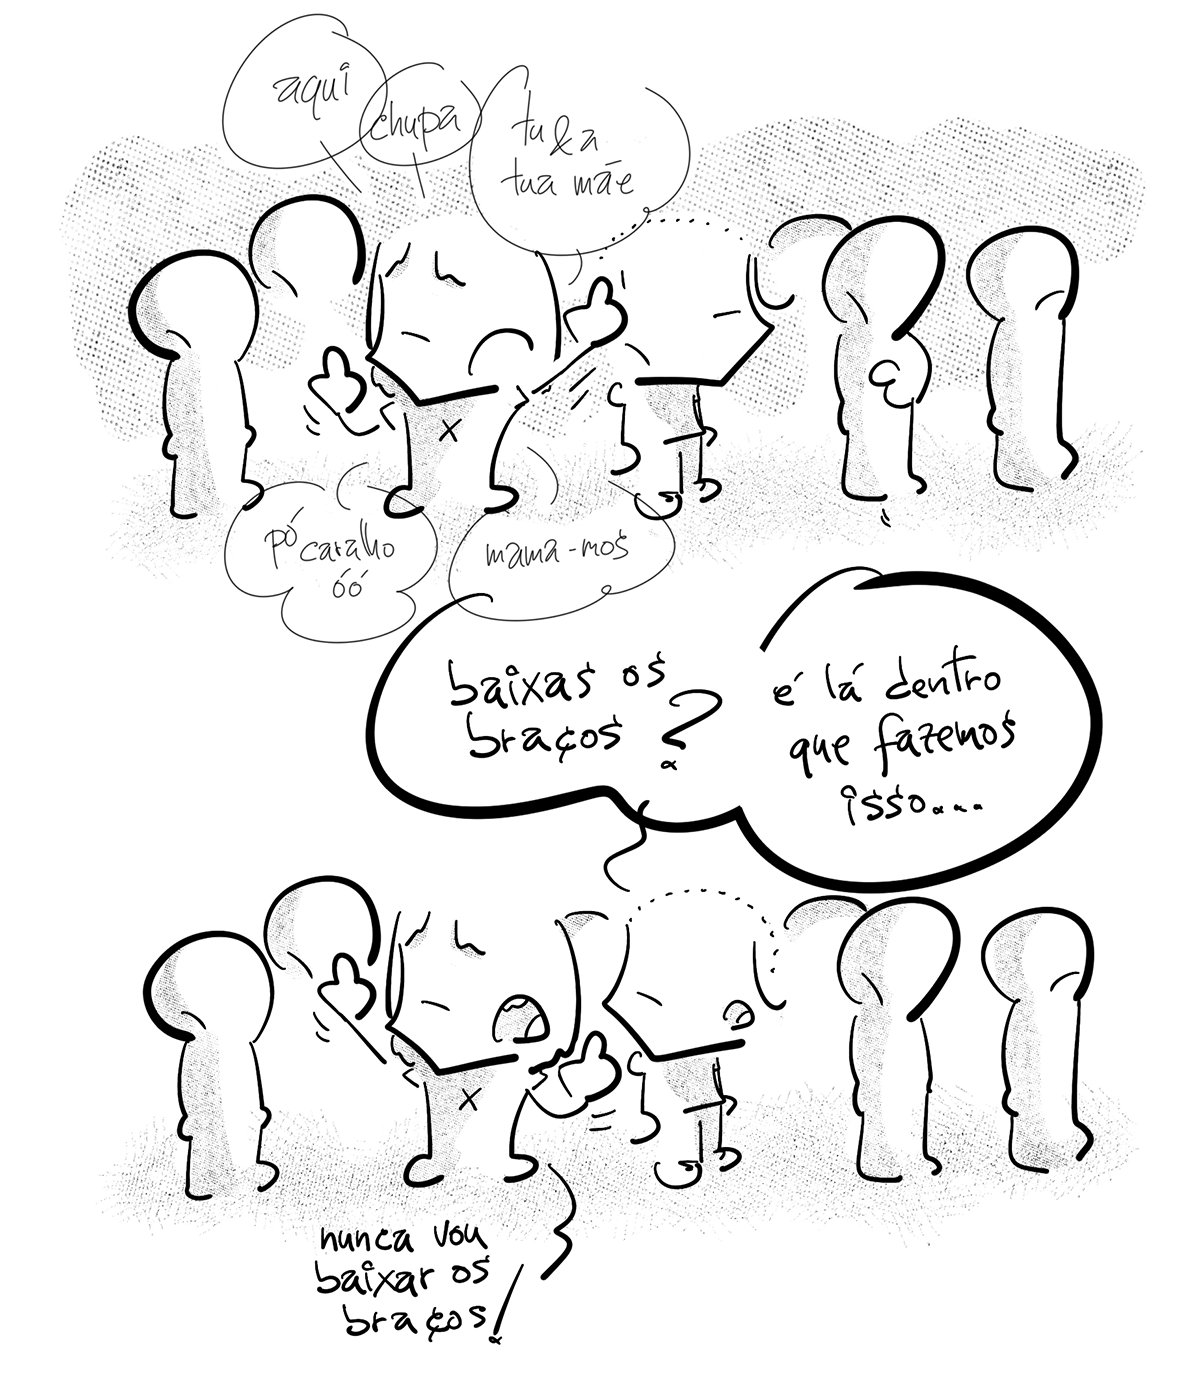 aqui
chupa
tu & a
tua mãe
pó
caralho
óó
mama-mos
baixas os
braços?
é lá dentro
que fazemos
isso...
nunca vou
baixar os
braços!